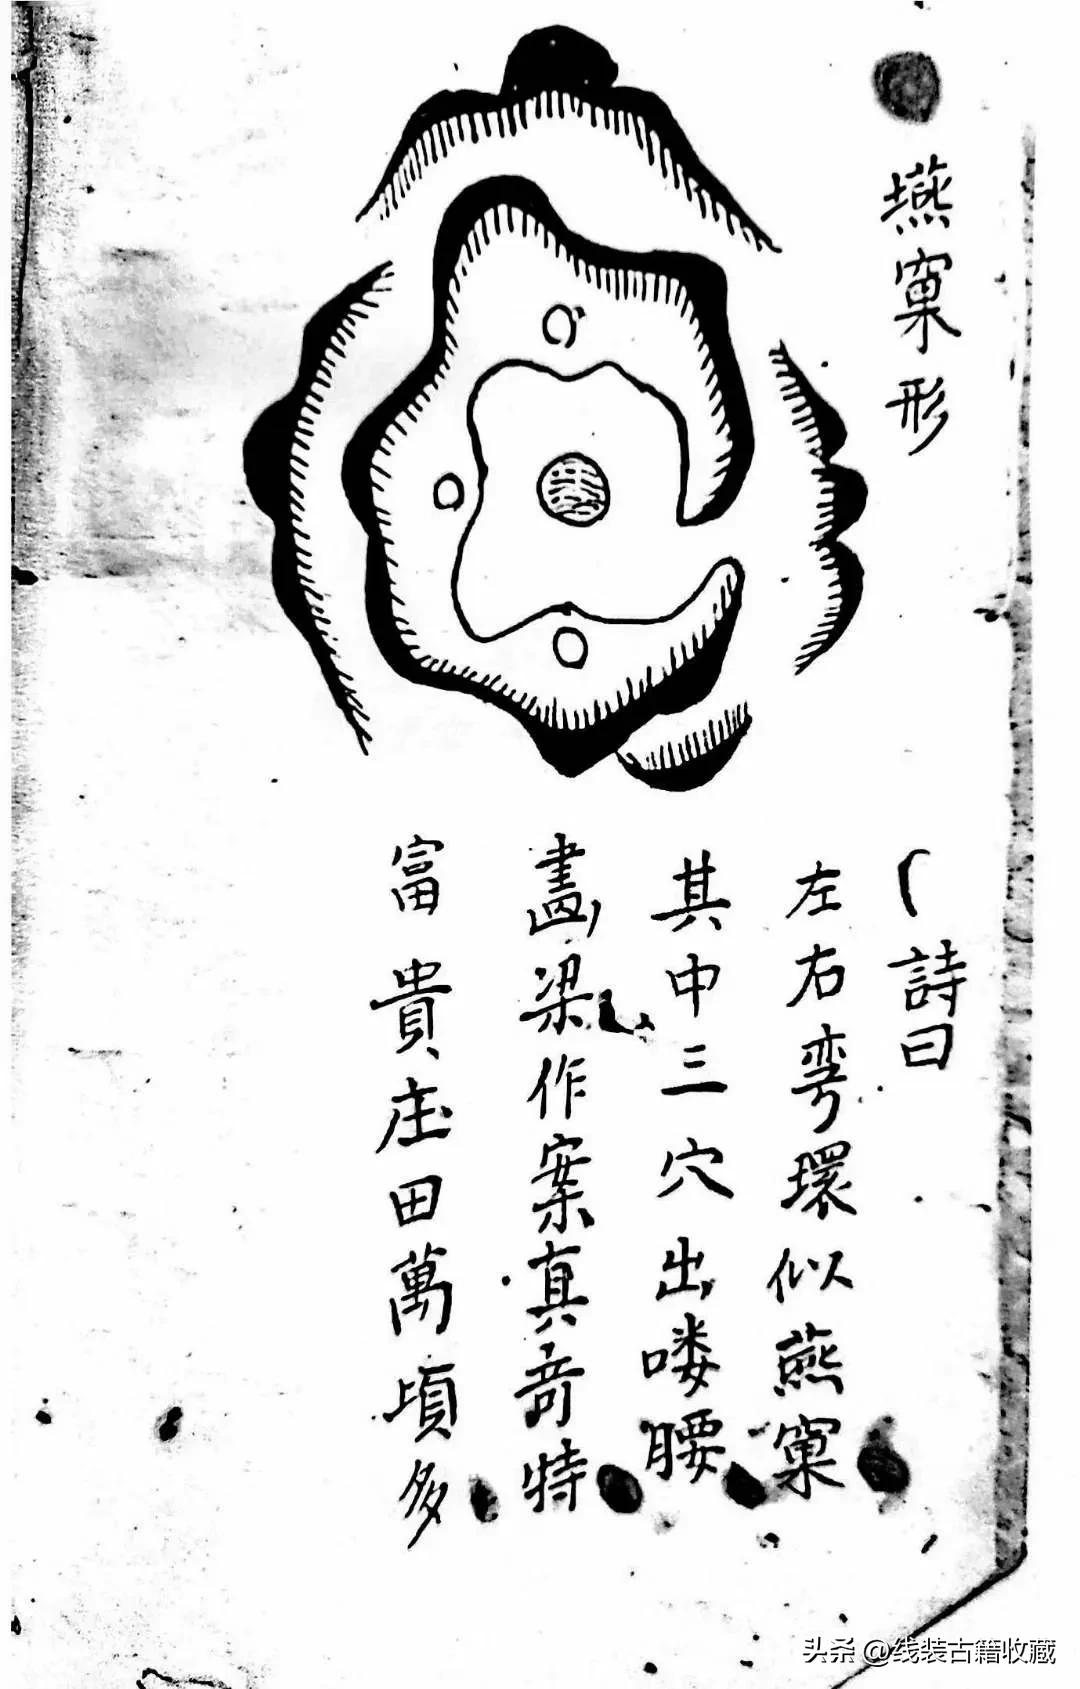 燕窠形
詩曰
左右弯環似燕窠
其中三穴出喽腰
畵梁作案真竒特
富貴庄田萬頃多
头条 @线装古籍收藏